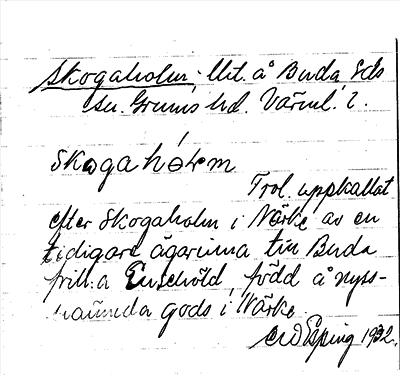 Skogaholm. Utt. å Buda Eds
sn. Grums hd. Värml. l.
skogahólm
Trol. uppkallat
efter Skogaholm i Närke av en
tidigare ägarinna till Buda
frih:a Ensehöld, född å nyss-
nämnda gods i Närke
Esping 1932.